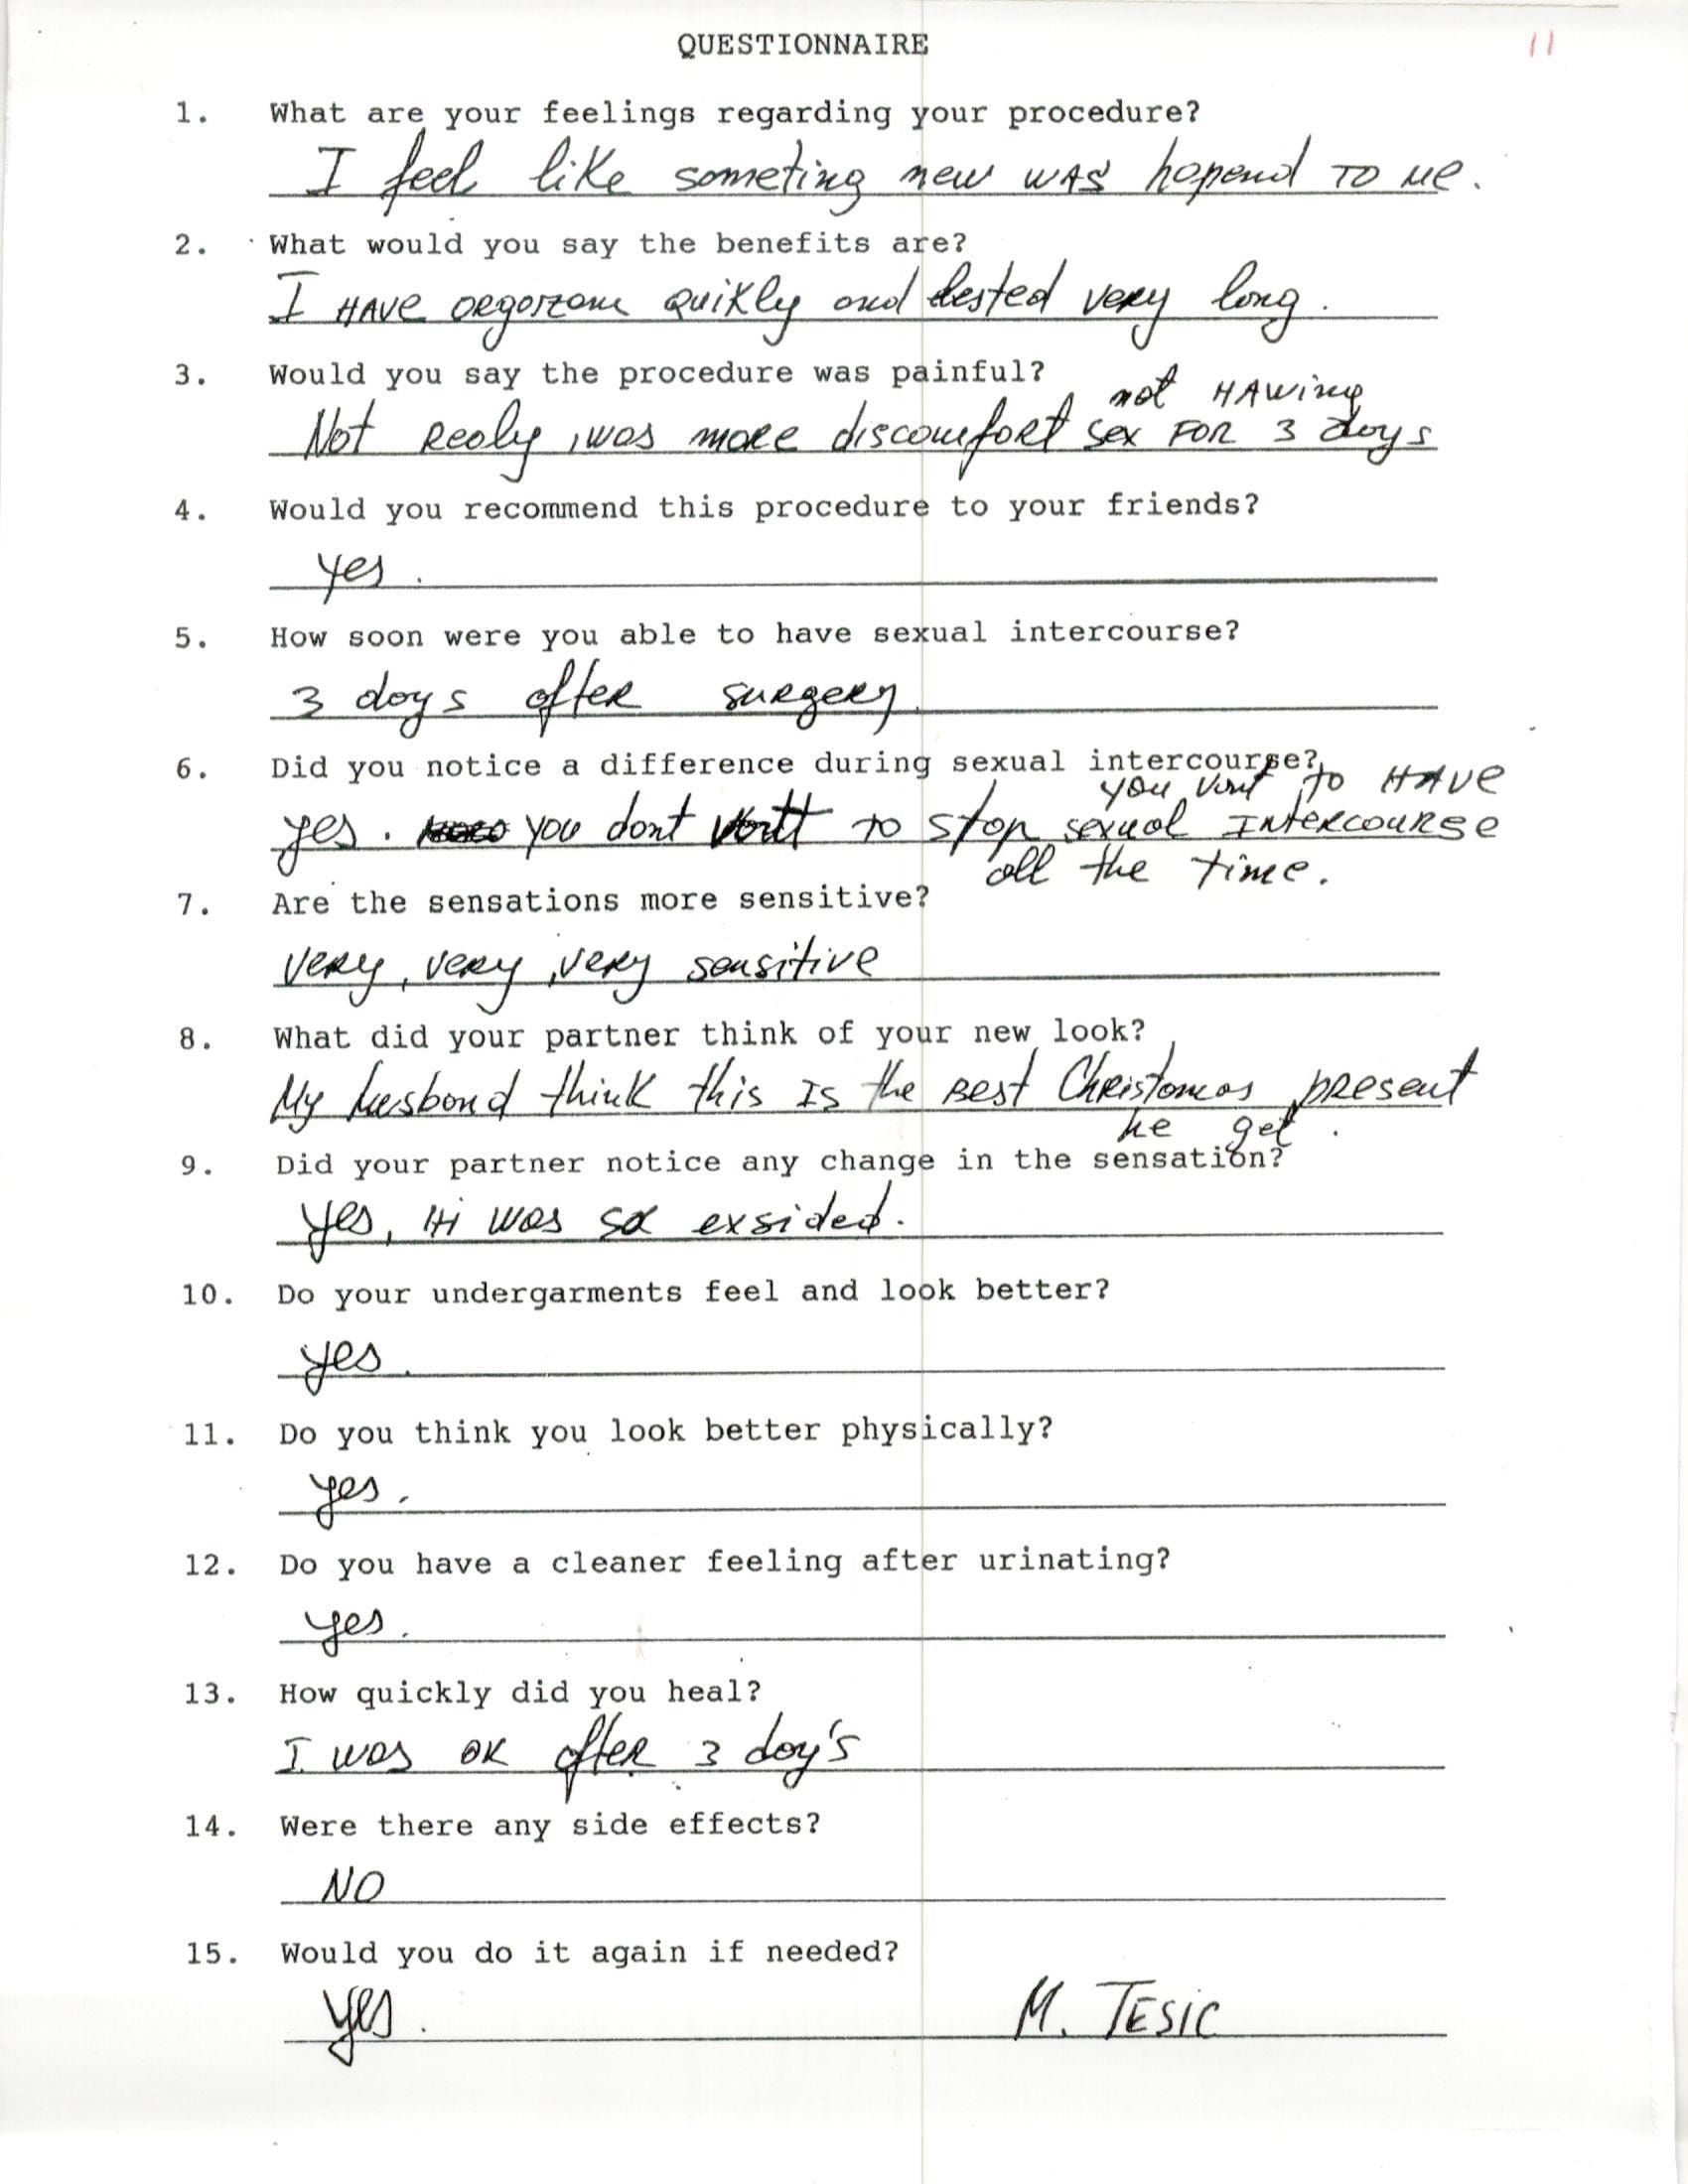 QUESTIONNAIRE 11
1. What are your feelings regarding your procedure?
I feel like someting new WAS hopend TO me.
2. What would you say the benefits are?
I HAVE orgorzom quikly and lested very long.
3. Would you say the procedure was painful?
not HAwing
Not Reoly, was more discomfort sex FOR 3 days
4. Would you recommend this procedure to your friends?
yes.
5. How soon were you able to have sexual intercourse?
3 days after surgery.
6. Did you notice a difference during sexual intercourse?
you vont to HAVE
yes. you dont vontt TO stop sexual INtercourse
all the time.
7. Are the sensations more sensitive?
very, very, very sensitive
8. What did your partner think of your new look?
My husband think this IS the BEST Christomas present
he get.
9. Did your partner notice any change in the sensation?
yes, Hi was so exsided.
10. Do your undergarments feel and look better?
yes.
11. Do you think you look better physically?
yes.
12. Do you have a cleaner feeling after urinating?
yes.
13. How quickly did you heal?
I was OK after 3 day's
14. Were there any side effects?
NO
15. Would you do it again if needed?
yes. M. TESIC